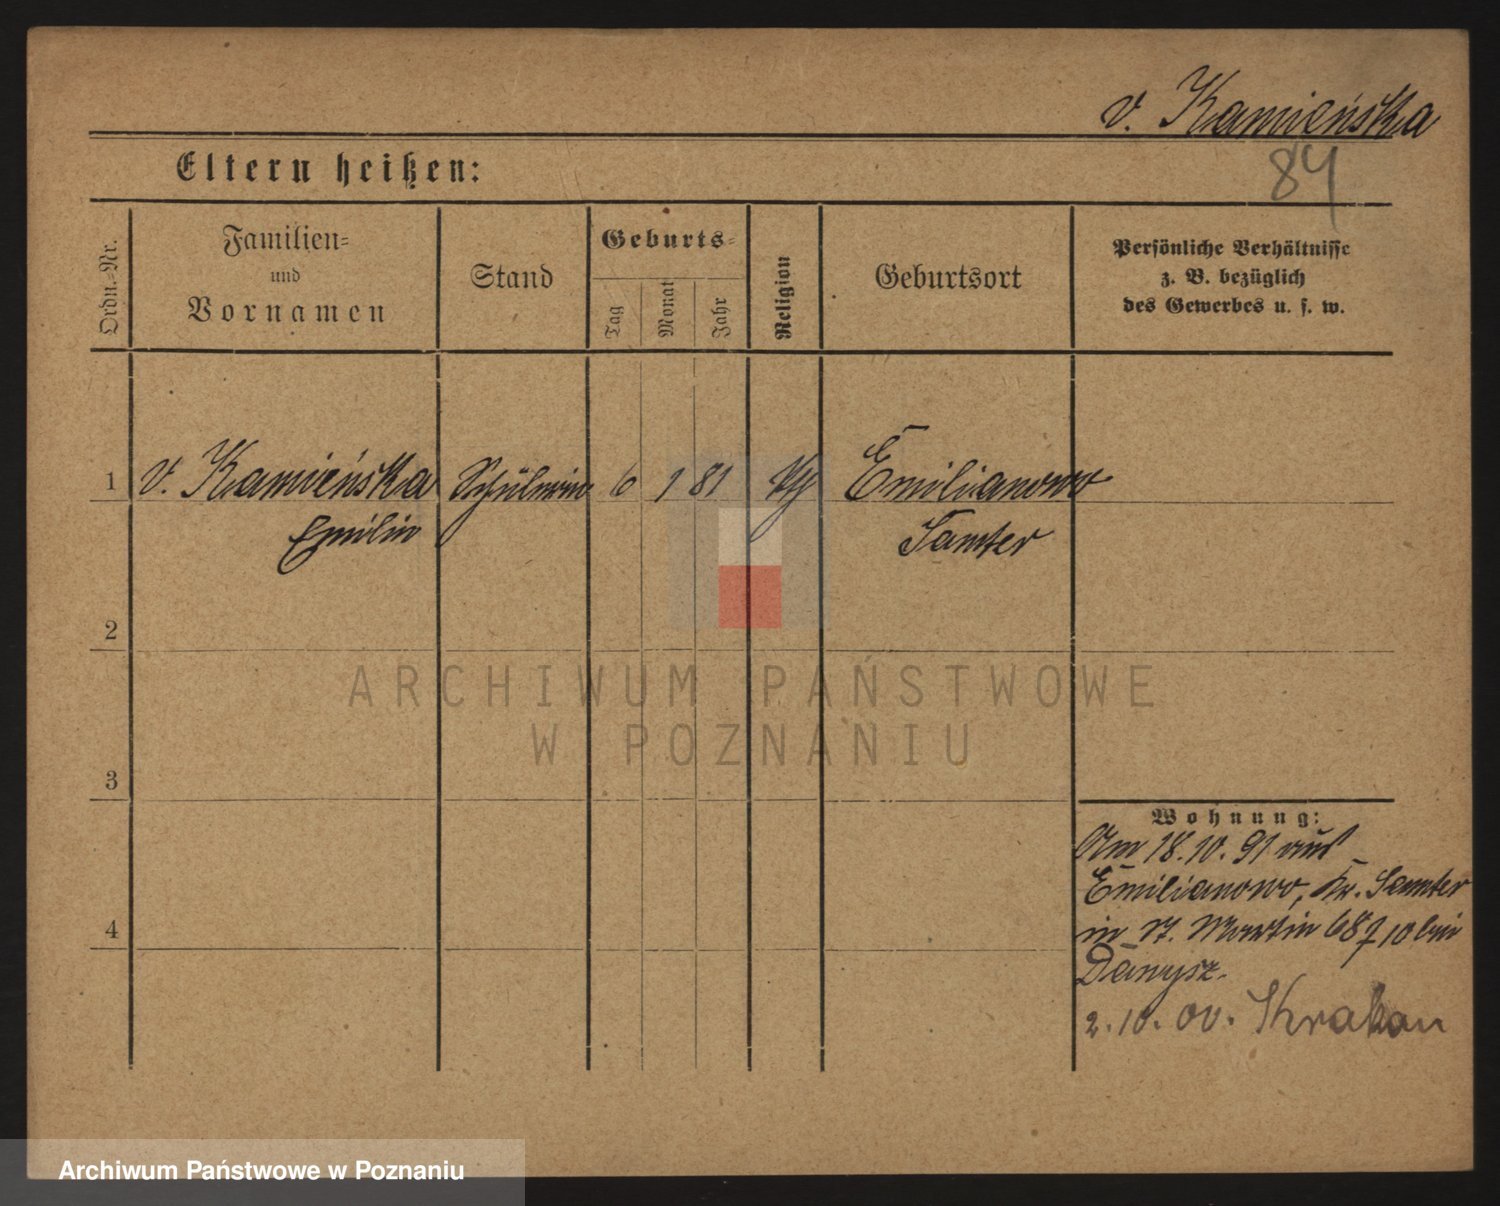 v. Kamieńska
84
Eltern heißen:
Ordn.-Nr.
Familien-
und
Vornamen
Stand
Geburts-
Tag
Monat
Jahr
Religion
Geburtsort
Persönliche Verhältnisse
z. B. bezüglich
des Gewerbes u. s. w.
1 v. Kamieńska Schülerin 6 1 81 kg Emilianowo
Emilie Samter
2
ARCHIWUM PAŃSTWOWE
W POZNANIU
3
Wohnung:
Am 18.10.91 aus
Emilianowo, Kr. Samter
in St. Martin 68 10 bei
4
Danysz.
2.10. Krakau
Archiwum Państwowe w Poznaniu